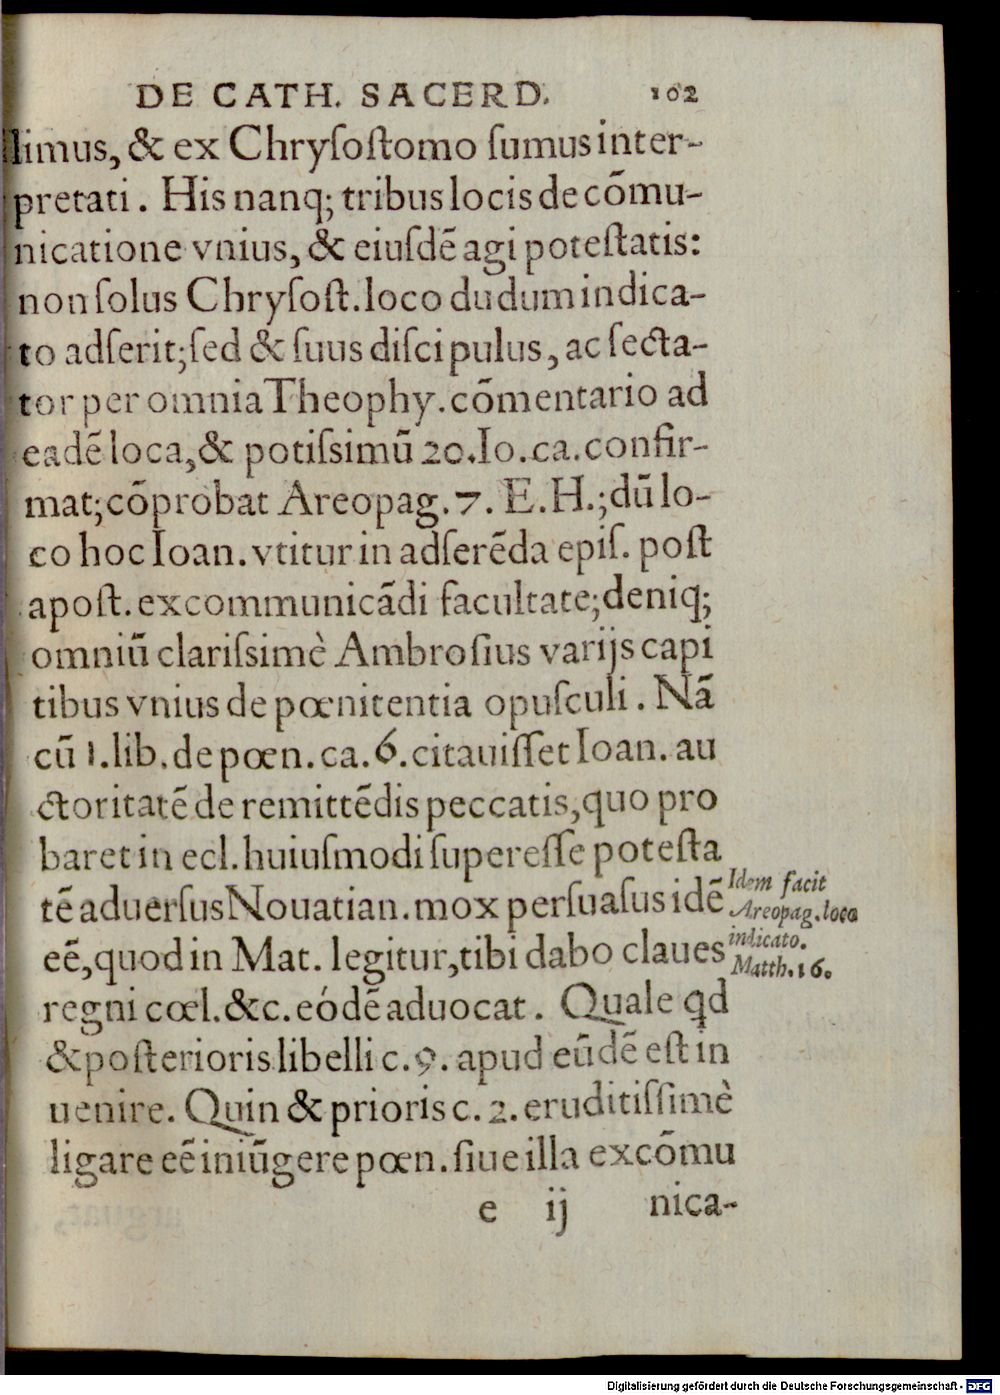 DE CATH. SACERD. 102
limus, & ex Chryſoſtomo ſumus inter-
pretati. His nanq; tribus locis de cõmu-
nicatione vnius, & eiuſdẽ agi poteſtatis:
non ſolus Chryſoſt. loco dudum indica-
to adſerit; ſed & ſuus diſcipulus, ac ſecta-
tor per omnia Theophy. cõmentario ad
eadẽ loca, & potiſsimũ 20. Io. ca. confir-
mat; cõprobat Areopag. 7. E. H.; dũ lo-
co hoc Ioan. vtitur in adſerẽda epiſ. poſt
apoſt. excommunicãdi facultate; deniq;
omniũ clariſsimè Ambroſius varijs capi
tibus vnius de pœnitentia opuſculi. Nã
cũ 1. lib. de pœn. ca. 6. citauiſſet Ioan. au
ctoritatẽ de remittẽdis peccatis, quo pro
baret in ecl. huiuſmodi ſupereſſe poteſta
tẽ aduerſus Nouatian. mox perſuaſus idẽ
eẽ, quod in Mat. legitur, tibi dabo claues
regni cœl. &c. eódẽ aduocat. Quale qd
& poſterioris libelli c. 9. apud eũdẽ eſt in
uenire. Quin & prioris c. 2. eruditiſſimè
ligare eẽ iniũgere pœn. ſiue illa excõmu
e ij nica-
Idem facit
Areopag. loco
indicato.
Matth. 16.
Digitalisierung gefördert durch die Deutsche Forschungsgemeinschaft - DFG